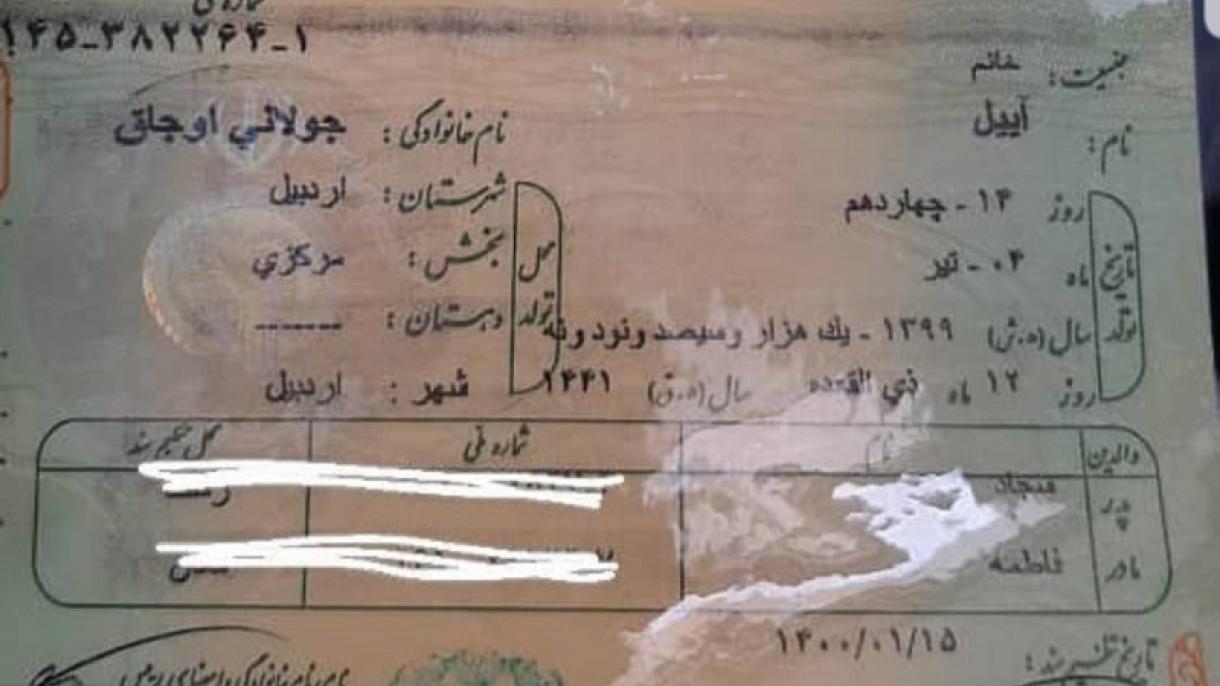 ۱۴۵-۳۸۲۲۶۴-۱
جنسیت: خانم
نام: آییل
نام خانوادگی: جولائي اوجاق
تاریخ تولد
روز ۱۴ - چهاردهم
ماه ۰۴ - تیر
سال (ه.ش) ۱۳۹۹ - يك هزار وسيصد ونود ونه
روز ۱۲ ماه ذي القعده سال (ه.ق) ۱۴۴۱
محل تولد
شهرستان: اردبيل
بخش: مركزي
دهستان: -------
شهر: اردبيل
والدین نام شماره ملی محل تنظیم سند
پدر سجاد
مادر فاطمه
تاریخ تنظیم سند: ۱۴۰۰/۰۱/۱۵